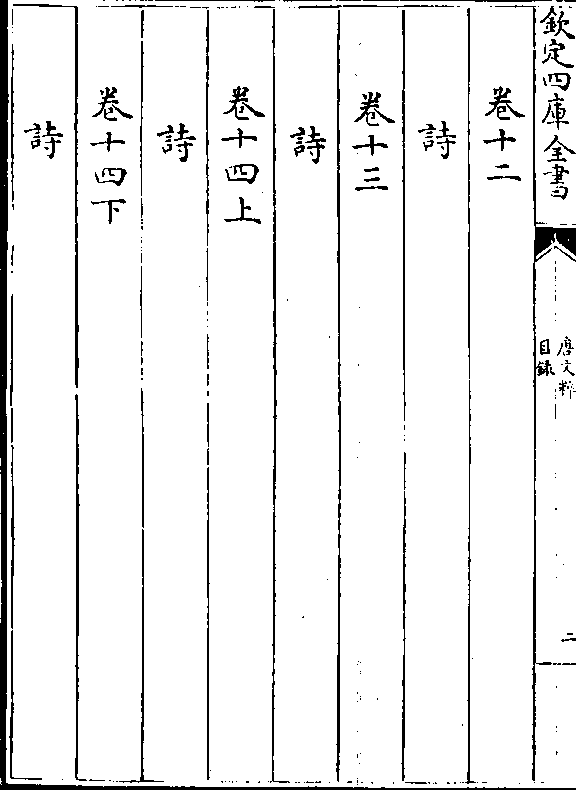 欽定四庫全書
唐文粹
目錄
二
卷十二
詩
卷十三
詩
卷十四上
詩
卷十四下
詩